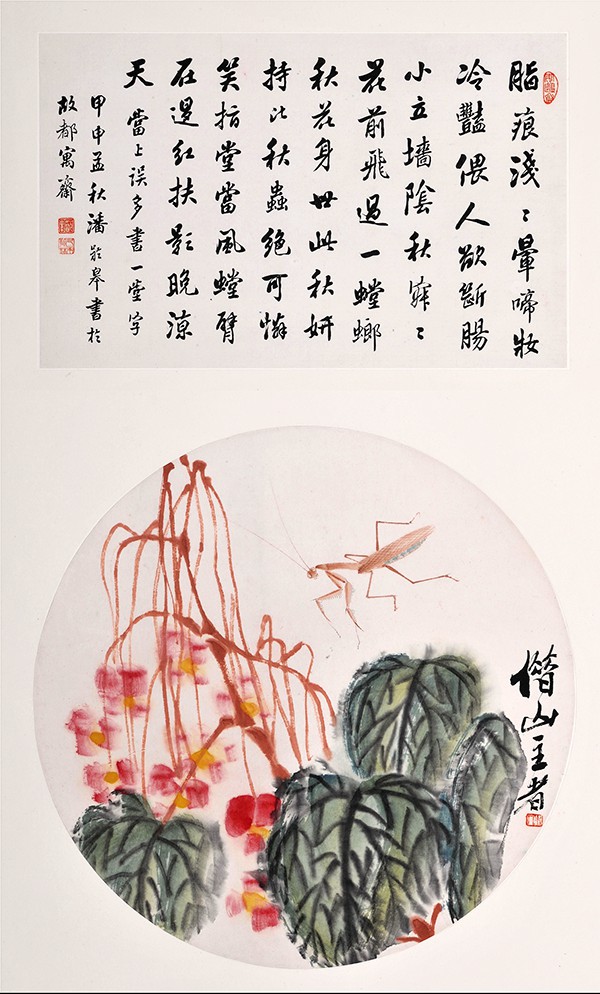 脂痕淺〻暈啼妝
冷豔偎人欲斷腸
小立墻陰秋寂〻
花前飛過一螳螂
秋花身世此秋妍
持比秋蟲絕可憐
笑指堂當風螳臂
在紅扶影晚涼
天 當上誤多書一堂字
甲申孟秋潘齡皋書於
故都寓齋
借山主者